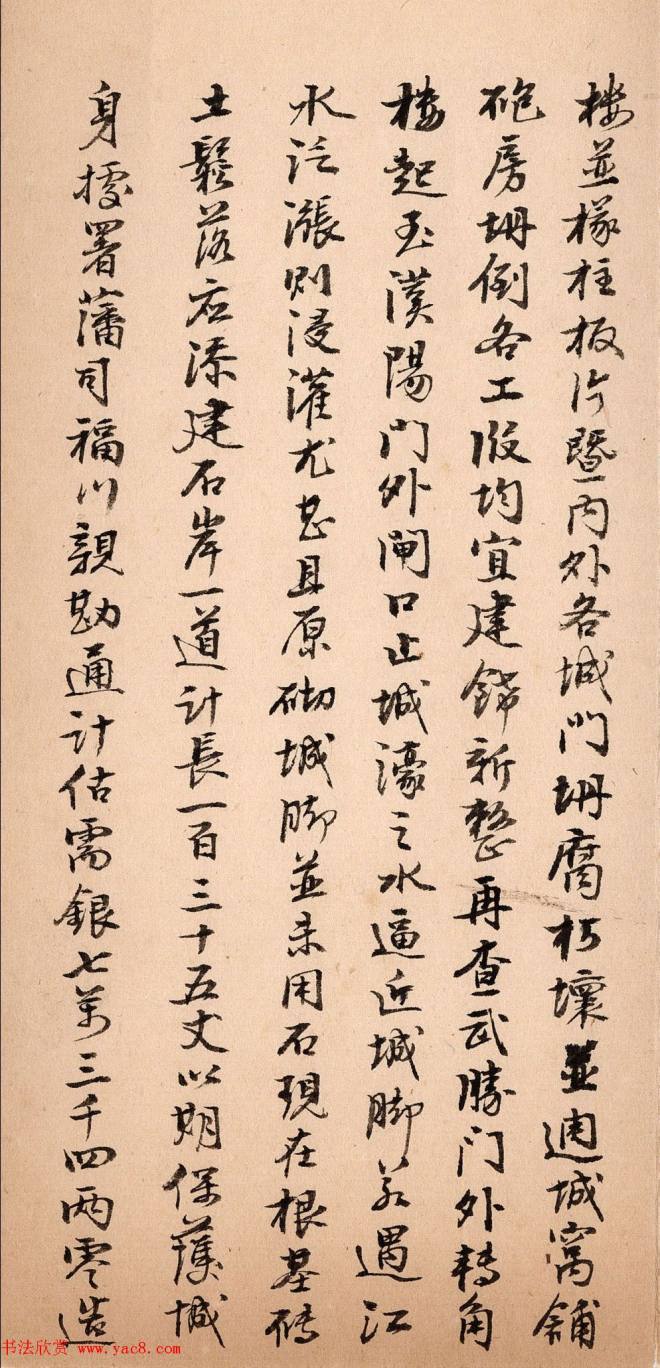 楼並椽柱板片暨內外各城門坍腐朽壞並週城窩舖
砲房坍倒各工段均宜建餙新整再查武勝门外轉角
樓起至漢陽门外閘口止城濠之水逼近城脚若遇江
水泛漲則浸灌尤甚且原砌城脚並未用石現在根基磚
土鬆落应添建石岸一道计長一百三十五丈以期保護城
身據署藩司福川親勘通计估需銀七萬三千四两零造
书法欣赏 www.yac8.com